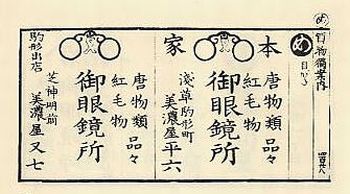 め
買物獨案内
め
目がね
本
家
唐物類 品々
紅毛物
御眼鏡所
淺草駒形町
美濃屋平六
唐物類 品々
紅毛物
御眼鏡所
芝神明前
美濃屋又七
駒形出店